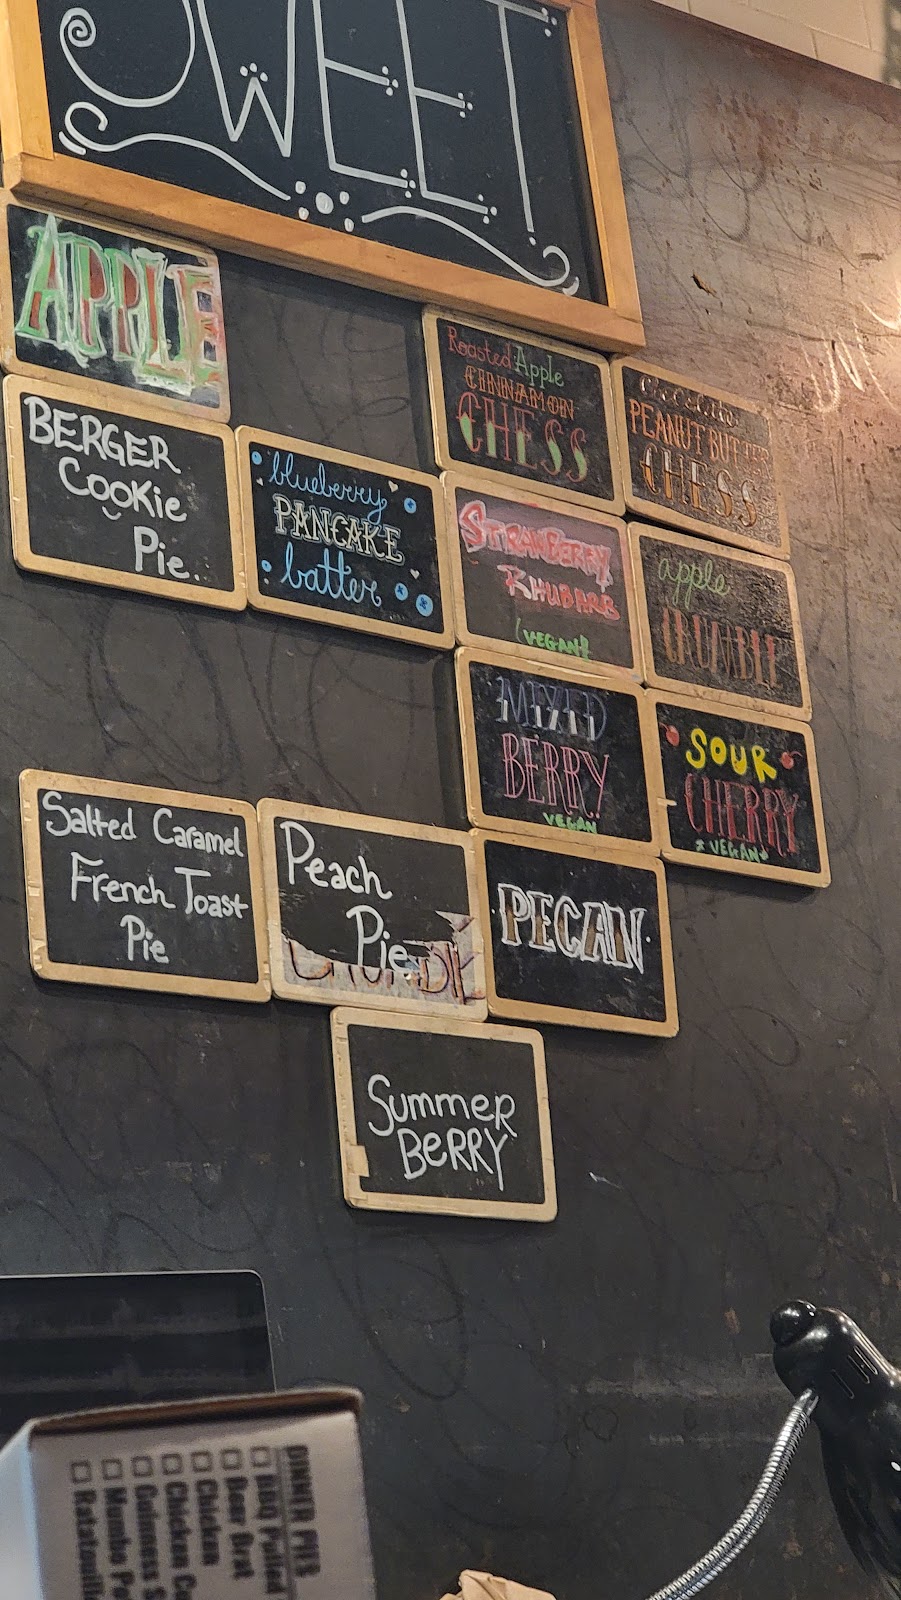 SWEET
APPLE
BERGER
COOKie
Pie.
blueberry
PANCAKE
batter
Roasted Apple
CINNAMON
CHESS
Chocolate
PEANUT BUTTER
CHESS
STRAWBERRY
RHUBARB
(VEGAN)
apple
CRUMBLE
MIXED
BERRY
VEGAN
SOUR
CHERRY
VEGAN
Salted Caramel
French Toast
Pie
Peach
Pie
PECAN
Summer
BERRY
DINNER PIES
BBQ Pulled
Beer Brat
Chicken
Chicken
Guinness
Ratatouille